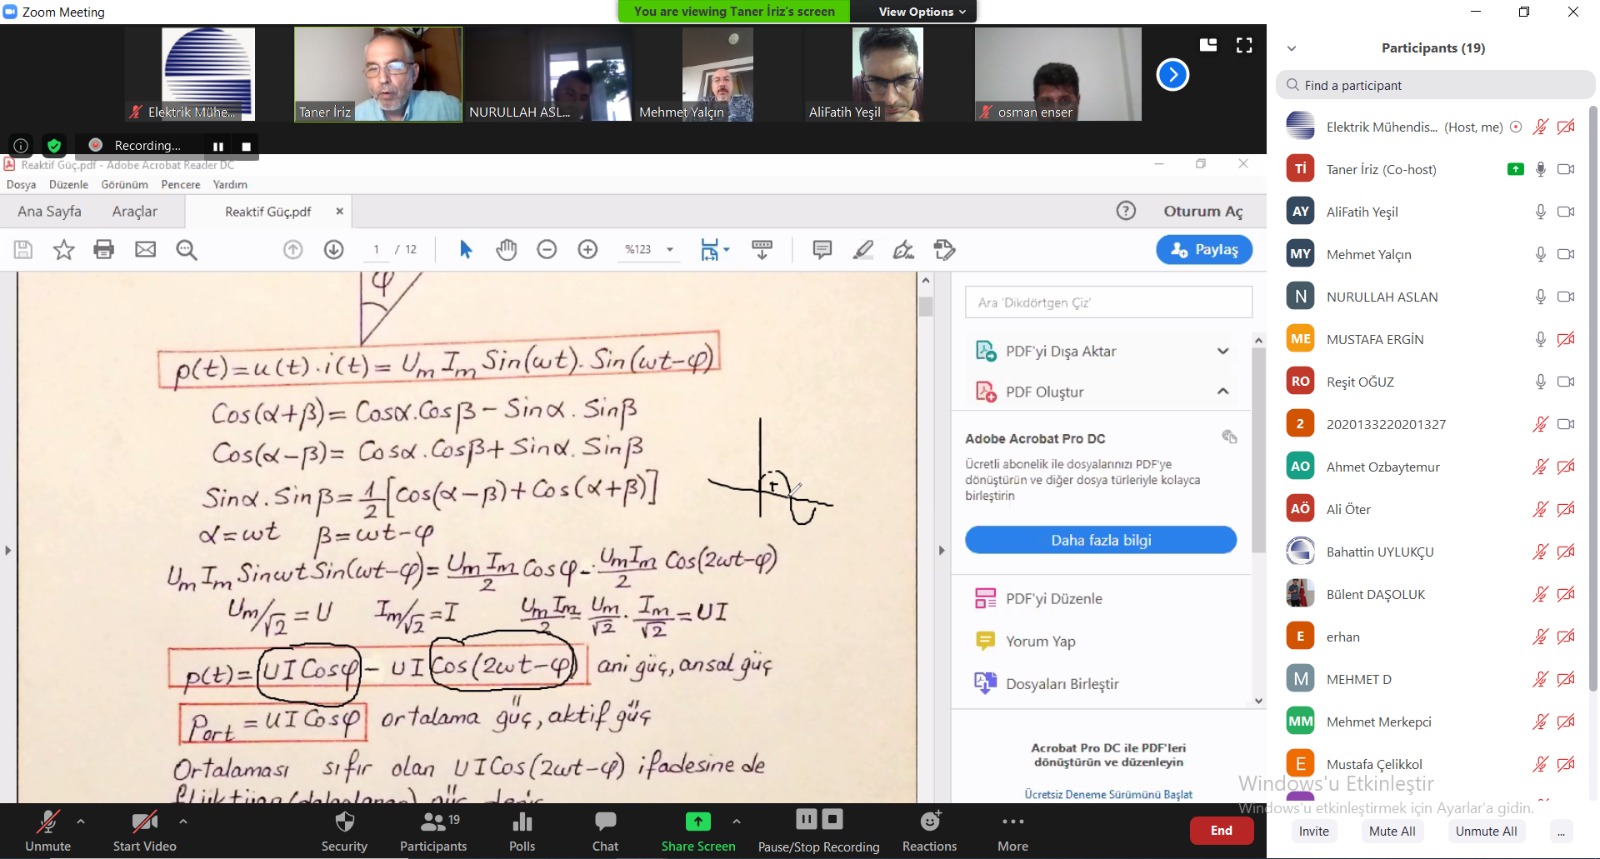 Zoom Meeting
You are viewing Taner İriz's screen
View Options
Elektrik Mühe...
Taner İriz
NURULLAH ASL...
Mehmet Yalçın
AliFatih Yeşil
osman enser
Recording...
Reaktif Güç.pdf - Adobe Acrobat Reader DC
Dosya Düzenle Görünüm Pencere Yardım
Ana Sayfa Araçlar Reaktif Güç.pdf × Oturum Aç
1 / 12 %123 Paylaş
φ
p(t)=u(t)·i(t)=UmImSin(ωt).Sin(ωt-φ)
Cos(α+β)=Cosα.Cosβ-Sinα.Sinβ
Cos(α-β)=Cosα.Cosβ+Sinα.Sinβ
Sinα.Sinβ=1/2[Cos(α-β)+Cos(α+β)]
α=ωt β=ωt-φ
UmImSinωtSin(ωt-φ)=UmIm/2 Cosφ-UmIm/2 Cos(2ωt-φ)
Um/√2=U Im/√2=I UmIm/2=Um/√2·Im/√2=UI
p(t)=UICosφ-UICos(2ωt-φ) ani güç, ansal güç
Port=UICosφ ortalama güç, aktif güç
Ortalaması sıfır olan UICos(2ωt-φ) ifadesine de
+
Ara 'Dikdörtgen Çiz'
PDF'yi Dışa Aktar
PDF Oluştur
Adobe Acrobat Pro DC
Ücretli abonelik ile dosyalarınızı PDF'ye
dönüştürün ve diğer dosya türleriyle kolayca
birleştirin
Daha fazla bilgi
PDF'yi Düzenle
Yorum Yap
Dosyaları Birleştir
Acrobat Pro DC ile PDF'leri
dönüştürün ve düzenleyin
Ücretsiz Deneme Sürümünü Başlat
Participants (19)
Find a participant
Elektrik Mühendis... (Host, me)
Tİ Taner İriz (Co-host)
AY AliFatih Yeşil
MY Mehmet Yalçın
N NURULLAH ASLAN
ME MUSTAFA ERGİN
RO Reşit OĞUZ
2 2020133220201327
AO Ahmet Ozbaytemur
AÖ Ali Öter
Bahattin UYLUKÇU
Bülent DAŞOLUK
E erhan
M MEHMET D
MM Mehmet Merkepci
E Mustafa Çelikkol
Windows'u Etkinleştir
Windows'u etkinleştirmek için Ayarlar'a gidin.
Invite Mute All Unmute All ...
Unmute
Start Video
Security
19
Participants
Polls
Chat
Share Screen
Pause/Stop Recording
Reactions
More
End